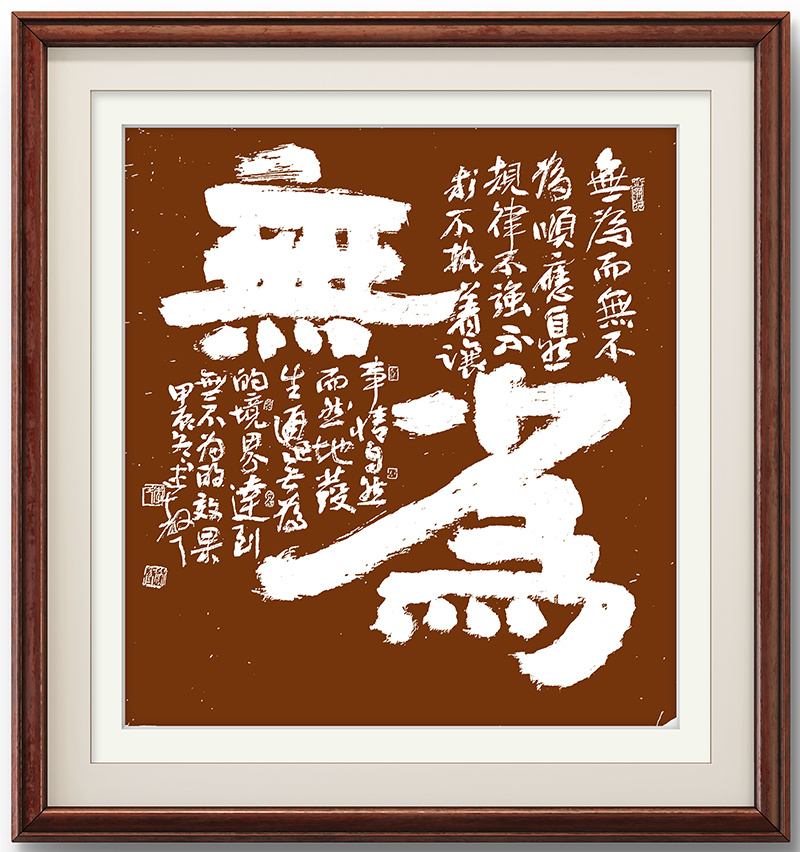 無為
無為而無不
為順應自然
規律不強
求不执着讓
事情自然
而然地發
生通過無為
的境界達到
無不为的效果
甲辰冬